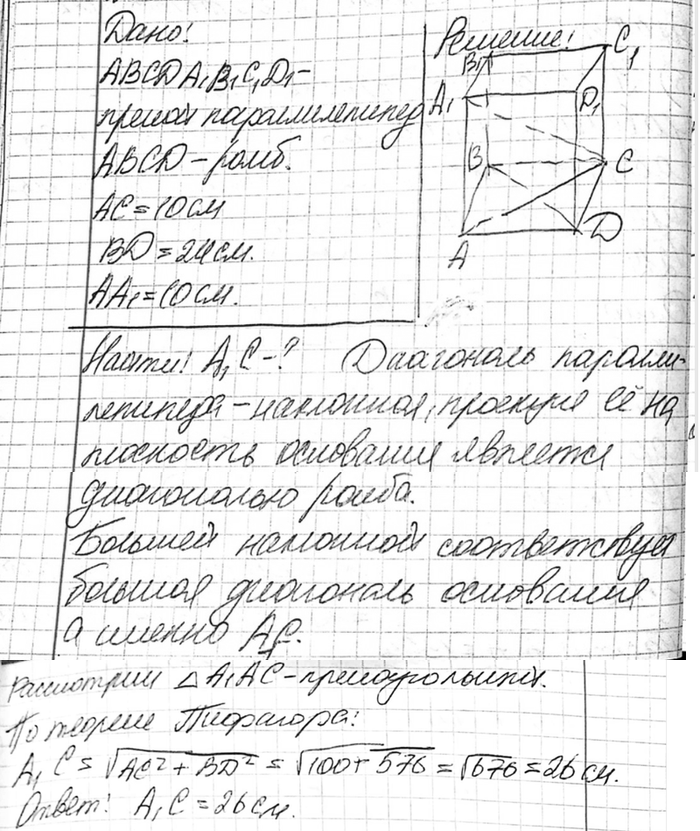 Дано:
ABCDA₁B₁C₁D₁ –
прямой параллелепипед
ABCD – ромб.
AC = 10 см
BD = 24 см.
AA₁ = 10 см.
Решение:
B₁
C₁
A₁
D₁
B
C
A
D
Найти: A₁C - ? Диагональ паралле-
лепипеда – наклонная, проекция её на
плоскость основания является
диагональю ромба.
Большей наклонной соответствует
большая диагональ основания
а именно AC.
Рассмотрим △A₁AC – прямоугольный.
По теореме Пифагора:
A₁C = √AC² + BD² = √100 + 576 = √676 = 26 см.
Ответ: A₁C = 26 см.